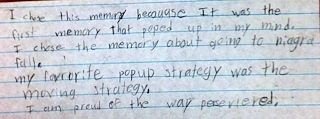 I chose this memory becauyse It was the
first memory That poped up in my mind.
I chose the memory about going to niagra
falls.
my favrorite popup strategy was the
moving strategy.
I am proud of the way persevered.